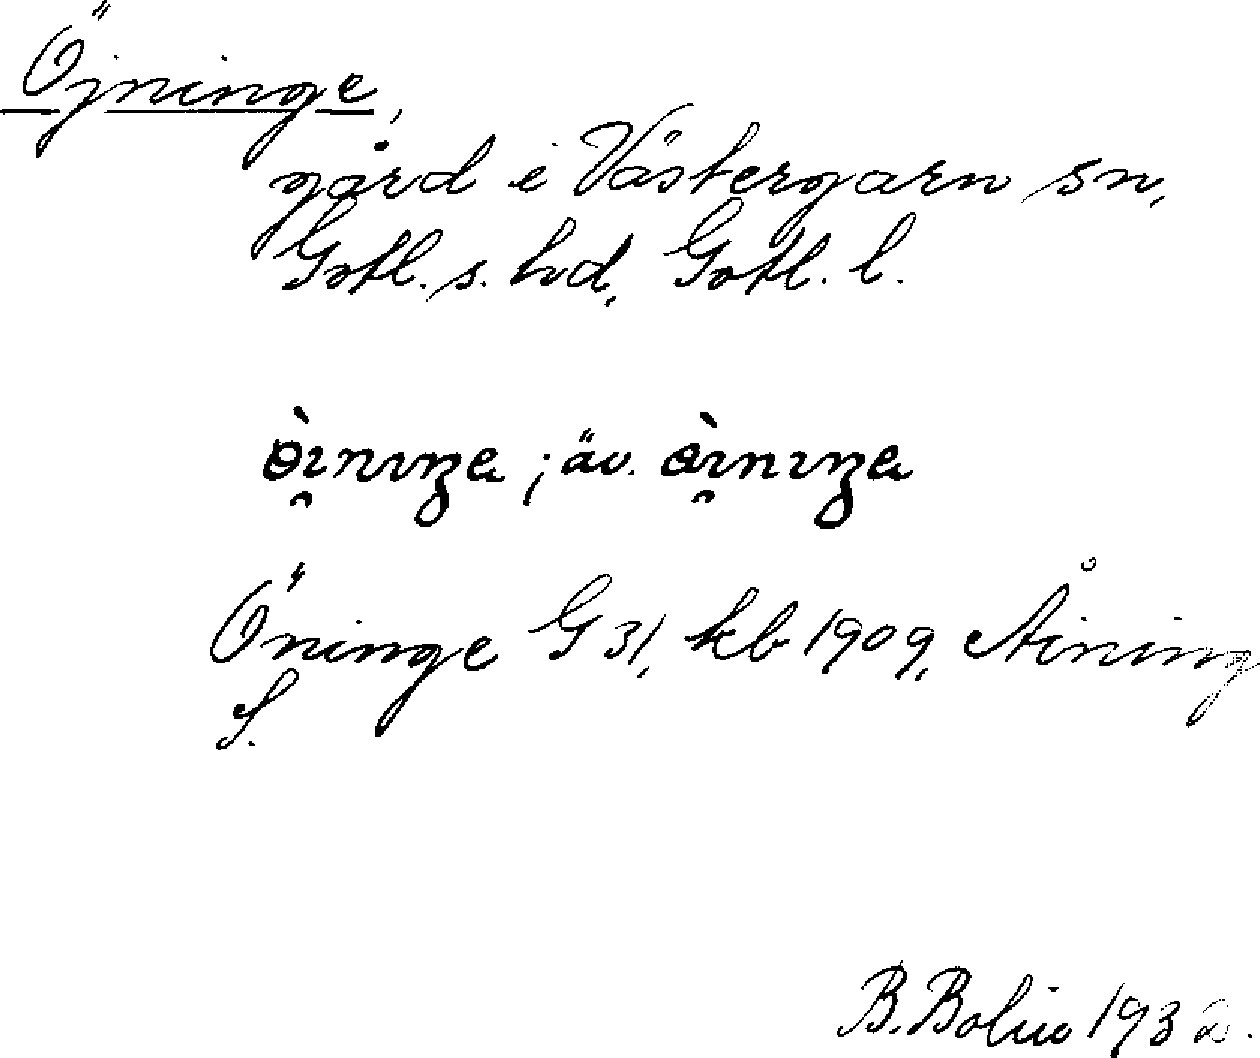 Öjninge,
gård i Västergarn sn,
Gotl. s. hd, Gotl. l.
; äv.
Öninge G 31, kb 1909, Åining
S.
B. Bolin 1932.